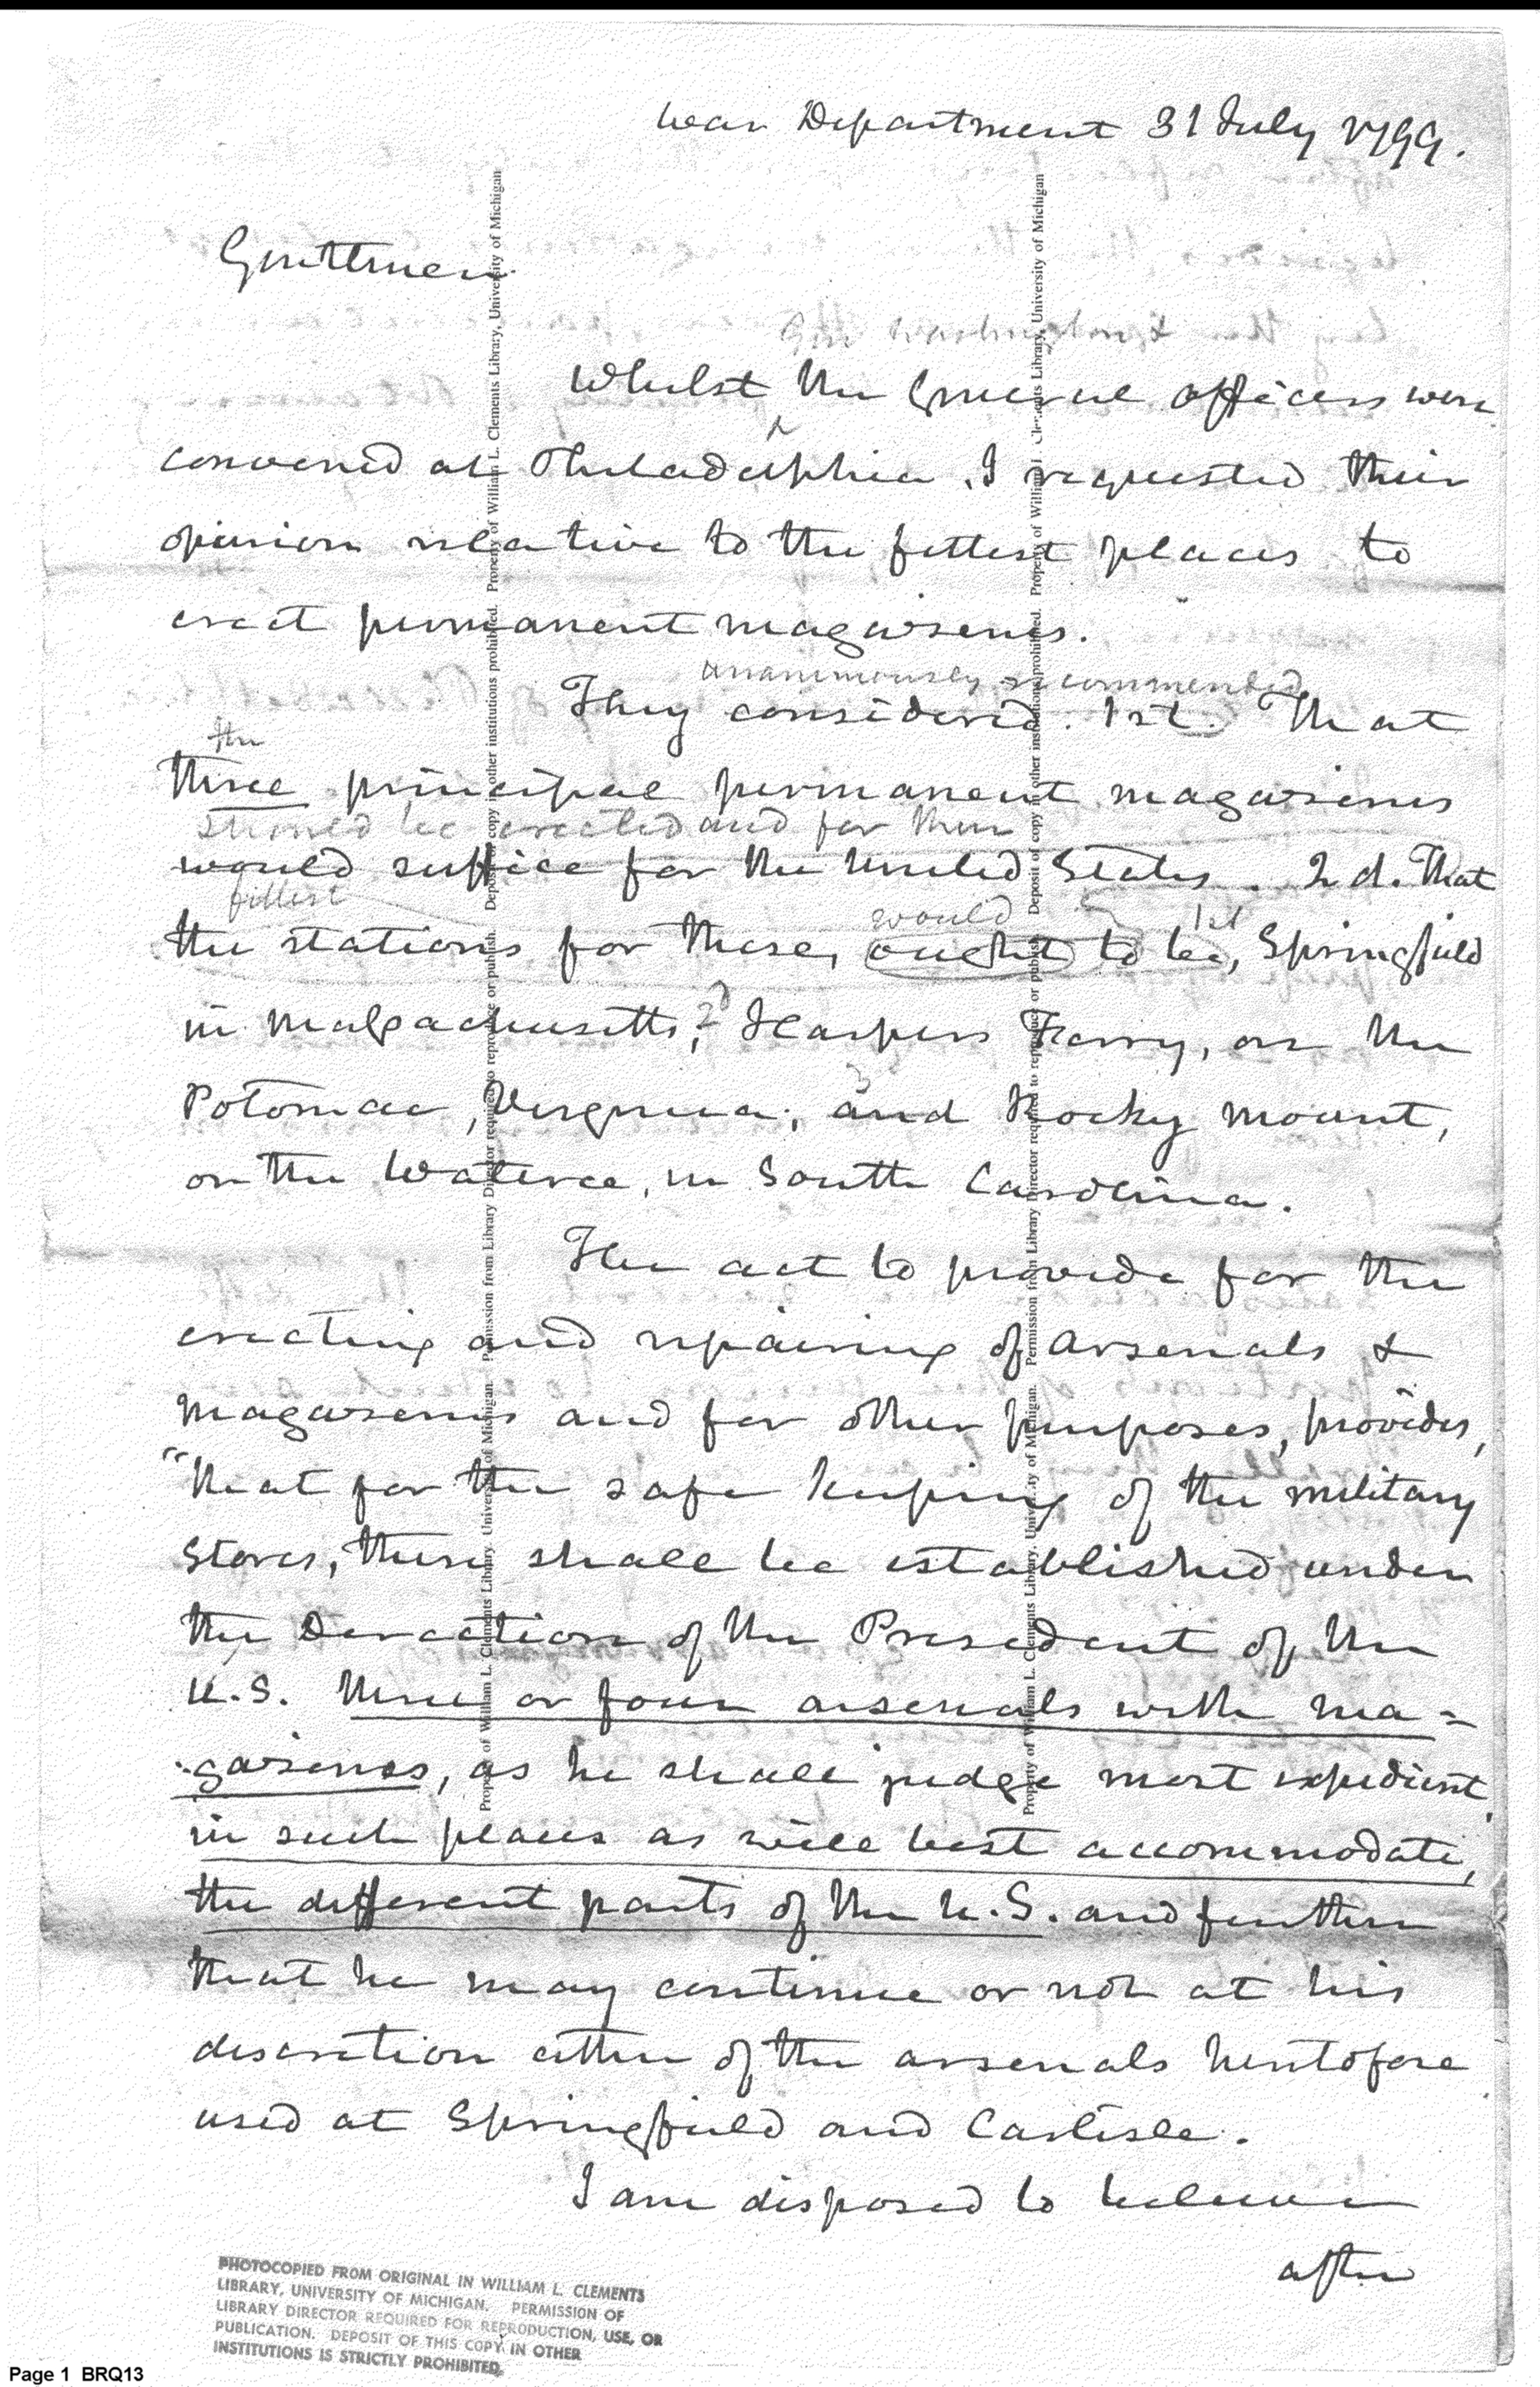 War Department 31 July 1799.
Gentlemen
Gen Washington &
Whilst the General officers were
convened at Philadelphia, I requested their
opinion relative to the fittest places to
erect permanent magazines.
unanimously recommended
They considered. 1st. That
the
three principal permanent magazines
should be erected and for them
would suffice for the United States. 2d. That
fittest
would 1st
the stations for these, ought to be, Springfield
in Massachusetts, 2d Harpers Ferry, on the
3
Potomac, Virginia; and Rocky Mount,
on the Wateree, in South Carolina.
The act to provide for the
erecting and repairing of Arsenals &
Magazines and for other purposes, provides,
"that for the safe keeping of the military
Stores, there shall be established under
the Direction of the President of the
U.S. three or four arsenals with ma=
gazines, as he shall judge most expedient,
in such places as will best accommodate,
the different parts of the U.S. and further
that he may continue or not at his
discretion either of the arsenals heretofore
used at Springfield and Carlisle.
I am disposed to believe
after
PHOTOCOPIED FROM ORIGINAL IN WILLIAM L. CLEMENTS
LIBRARY, UNIVERSITY OF MICHIGAN. PERMISSION OF
LIBRARY DIRECTOR REQUIRED FOR REPRODUCTION, USE, OR
PUBLICATION. DEPOSIT OF THIS COPY IN OTHER
INSTITUTIONS IS STRICTLY PROHIBITED.
Page 1 BRQ13
Property of William L. Clements Library, University of Michigan. Permission from Library Director required to reproduce or publish. Deposit of copy in other institutions prohibited. Property of William L. Clements Library, University of Michigan
Property of William L. Clements Library, University of Michigan. Permission from Library Director required to reproduce or publish. Deposit of copy in other institutions prohibited. Property of William L. Clements Library, University of Michigan